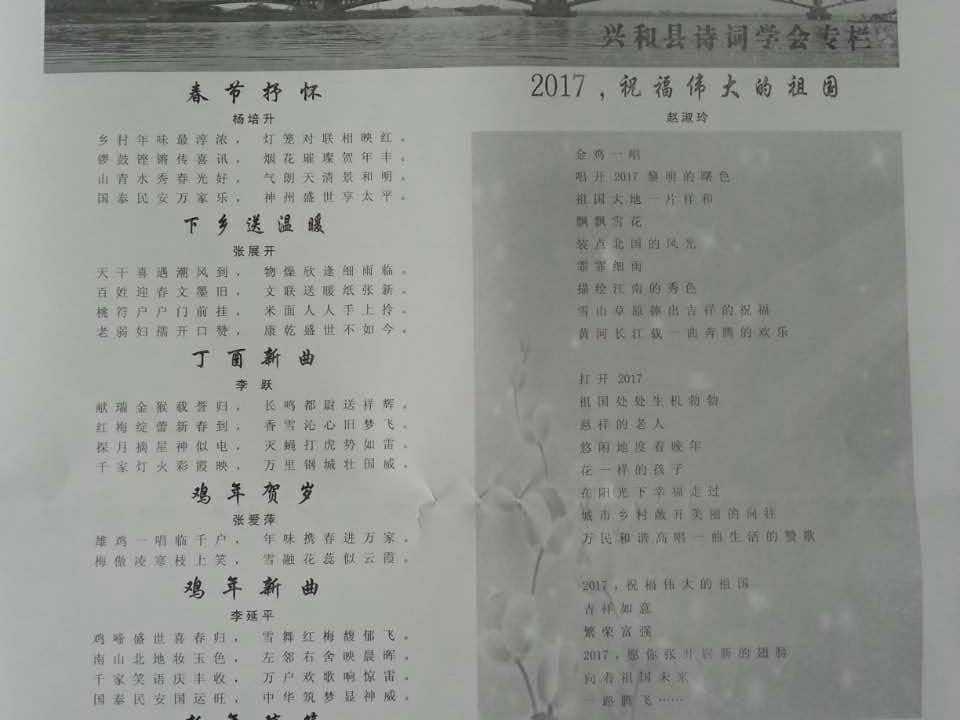 兴和县诗词学会专栏
春节抒怀
杨培升
乡村年味最淳浓，灯笼对联相映红。
锣鼓铿锵传喜讯，烟花璀璨贺年丰。
山青水秀春光好，气朗天清景和明。
国泰民安万家乐，神州盛世享太平。
下乡送温暖
张展开
天干喜遇潮风到，物燥欣逢细雨临。
百姓迎春文墨旧，文联送暖纸张新。
桃符户户门前挂，米面人人手上拎。
老弱妇孺开口赞，康乾盛世不如今。
丁酉新曲
李 跃
献瑞金猴载誉归，长鸣都尉送祥辉。
红梅绽蕾新春到，香雪沁心旧梦飞。
探月摘星神似电，灭蝇打虎势如雷。
千家灯火彩霞映，万里钢城壮国威。
鸡年贺岁
张爱萍
雄鸡一唱临千户，年味携春进万家。
梅傲凌寒枝上笑，雪融花蕊似云霞。
鸡年新曲
李延平
鸡啼盛世喜春归，雪舞红梅馥郁飞。
南山北地妆玉色，左邻右舍映晨晖。
千家笑语庆丰收，万户欢歌响惊雷。
国泰民安国运旺，中华筑梦显神威。
2017，祝福伟大的祖国
赵淑玲
金鸡一唱
唱开2017黎明的曙色
祖国大地一片祥和
飘飘雪花
装点北国的风光
霏霏细雨
描绘江南的秀色
雪山草原捧出吉祥的祝福
黄河长江载一曲奔腾的欢乐
打开2017
祖国处处生机勃勃
慈祥的老人
悠闲地度着晚年
花一样的孩子
在阳光下幸福走过
城市乡村敞开美丽的向往
万民和谐高唱一曲生活的赞歌
2017，祝福伟大的祖国
吉祥如意
繁荣富强
2017，愿你张开崭新的翅膀
向着祖国未来
一路腾飞……